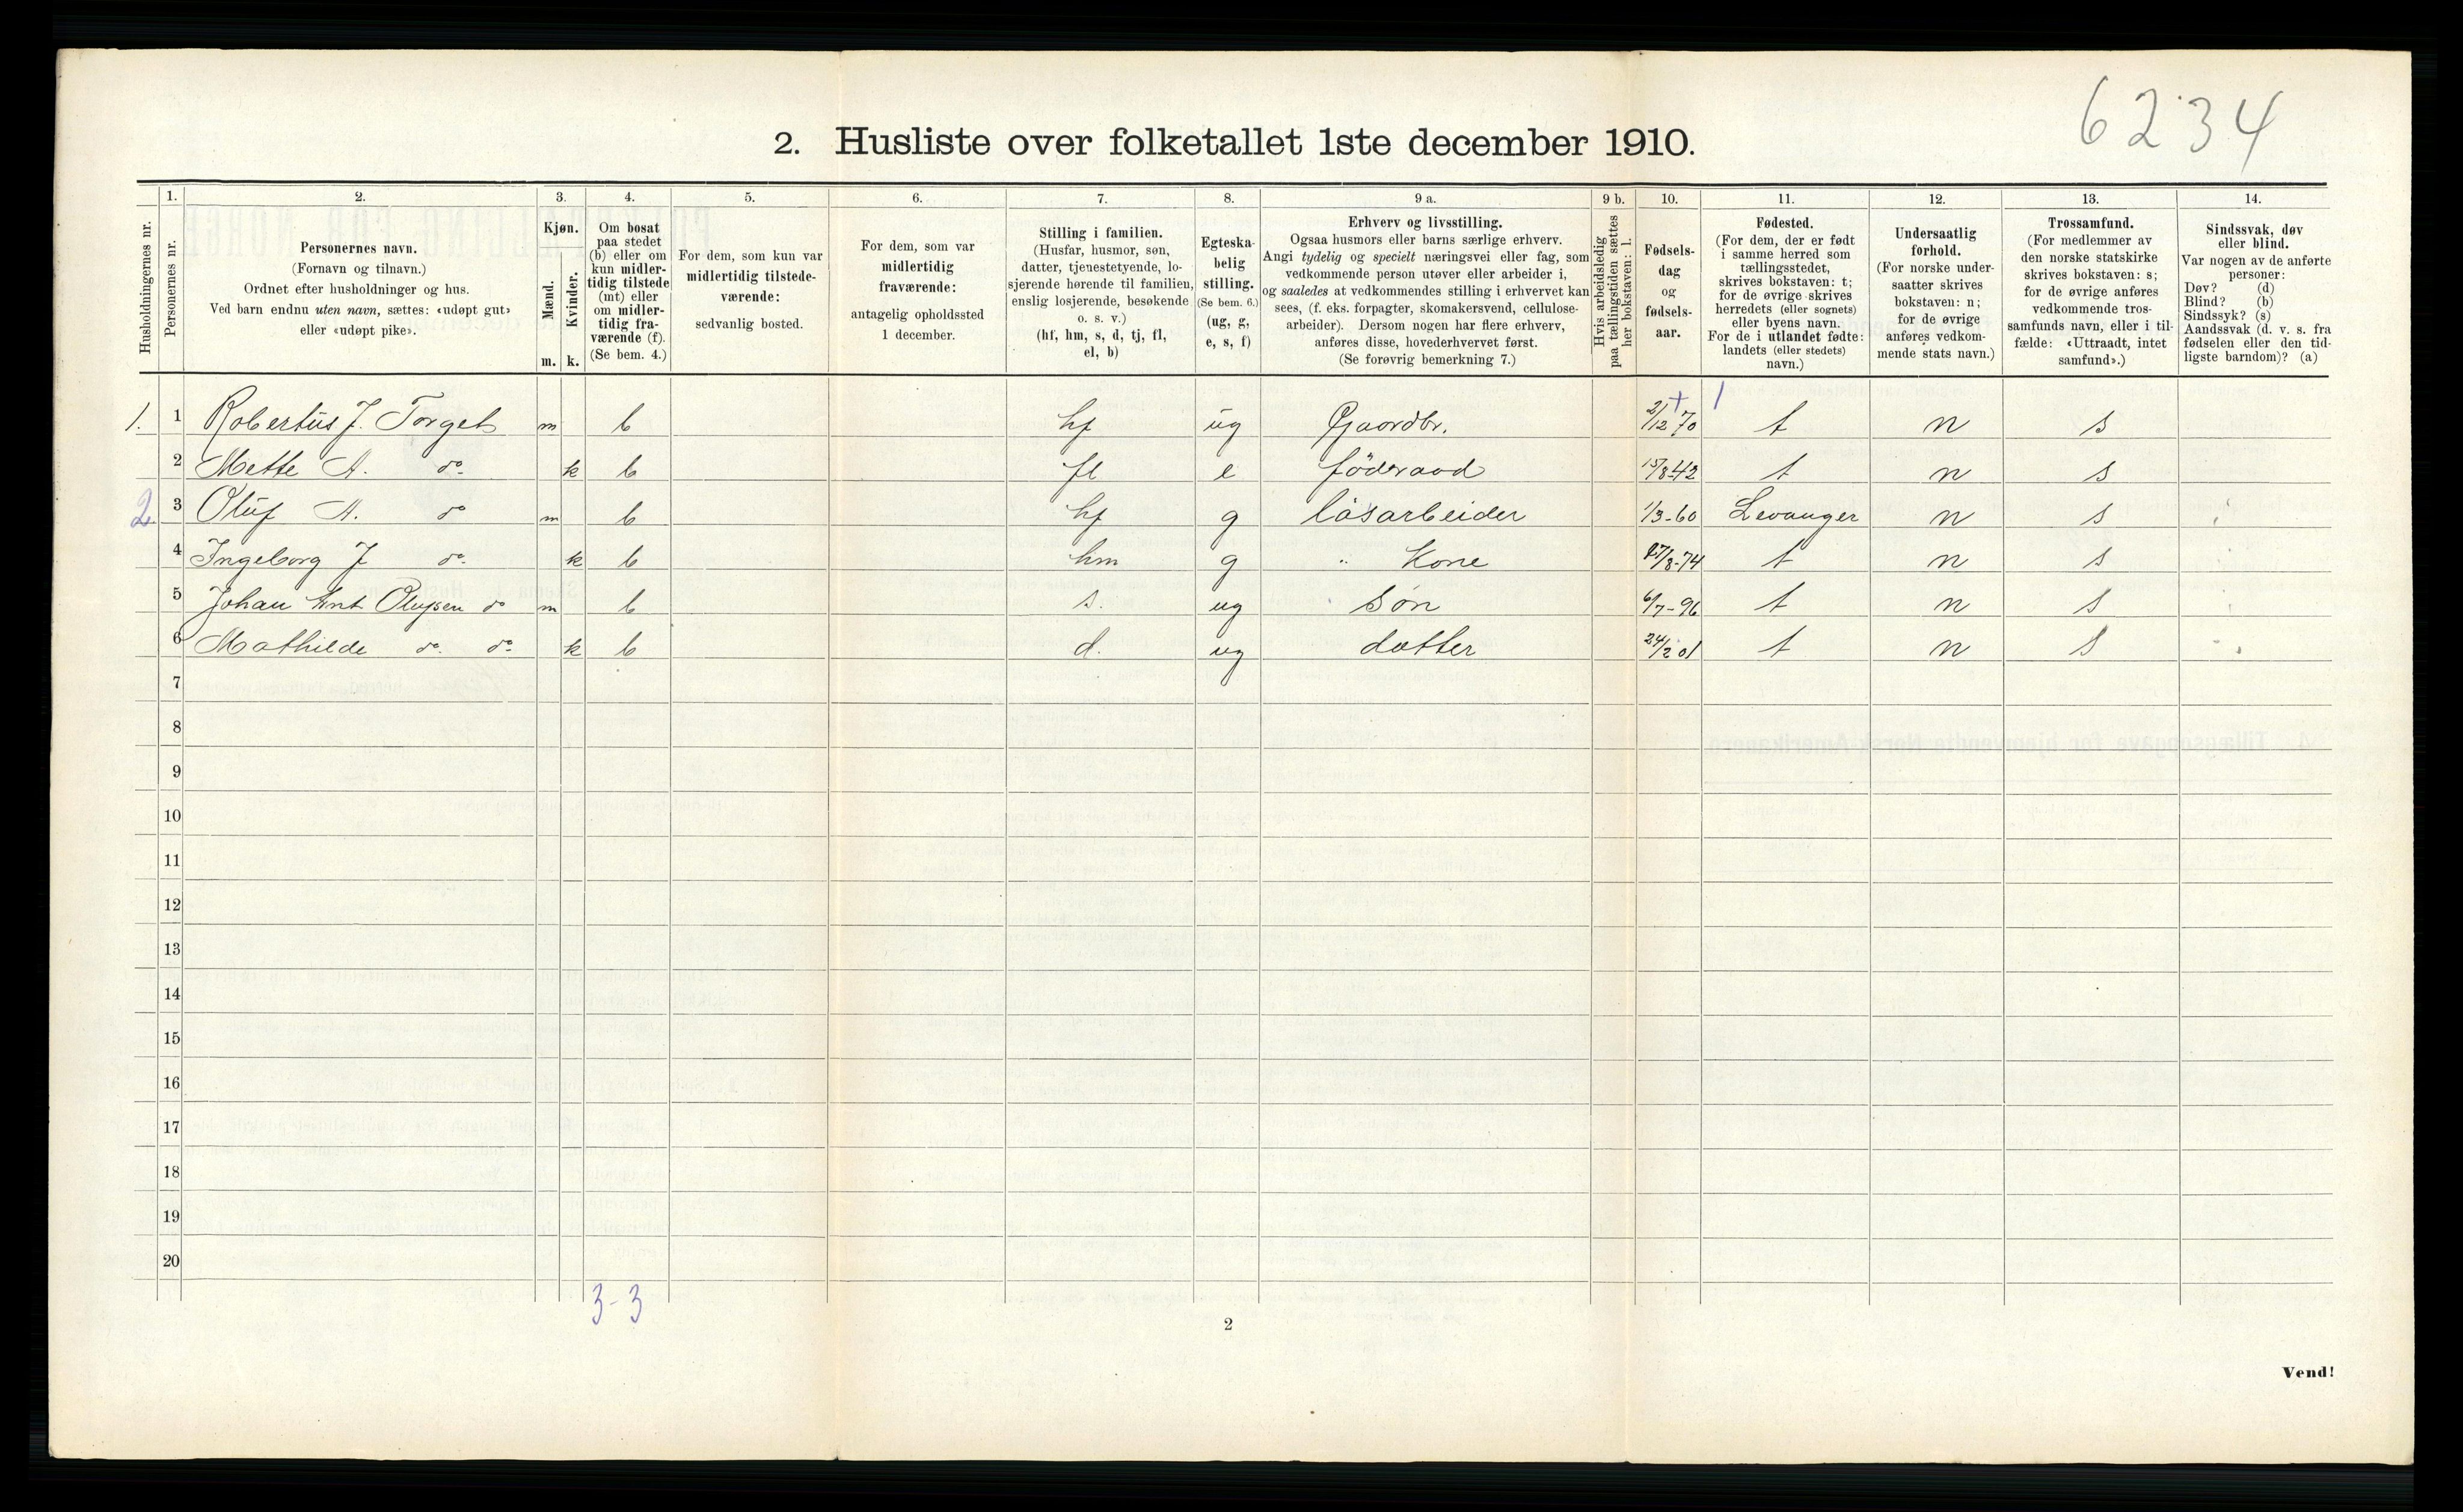 6234
2. Husliste over folketallet 1ste december 1910.
Husholdningernes nr.
1.
Personernes nr.
2.
Personernes navn.
(Fornavn og tilnavn.)
Ordnet efter husholdninger og hus.
Ved barn endnu uten navn, sættes: «udøpt gut»
eller «udøpt pike».
3.
Kjøn.
Mænd.
Kvinder.
m. k.
4.
Om bosat
paa stedet
(b) eller om
kun midler-
tidig tilstede
(mt) eller
om midler-
tidig fra-
værende (f).
(Se bem. 4.)
5.
For dem, som kun var
midlertidig tilstede-
værende:
sedvanlig bosted.
6.
For dem, som var
midlertidig
fraværende:
antagelig opholdssted
1 december.
7.
Stilling i familien.
(Husfar, husmor, søn,
datter, tjenestetyende, lo-
sjerende hørende til familien,
enslig losjerende, besøkende
o. s. v.)
(hf, hm, s, d, tj, fl,
el, b)
8.
Egteska-
belig
stilling.
(Se bem. 6.)
(ug, g,
e, s, f)
9 a.
Erhverv og livsstilling.
Ogsaa husmors eller barns særlige erhverv.
Angi tydelig og specielt næringsvei eller fag, som
vedkommende person utøver eller arbeider i,
og saaledes at vedkommendes stilling i erhvervet kan
sees, (f. eks. forpagter, skomakersvend, cellulose-
arbeider). Dersom nogen har flere erhverv,
anføres disse, hovederhvervet først.
(Se forøvrig bemerkning 7.)
9 b.
Hvis arbeidsledig
paa tællingstiden sættes
her bokstaven: l.
10.
Fødsels-
dag
og
fødsels-
aar.
11.
Fødested.
(For dem, der er født
i samme herred som
tællingsstedet,
skrives bokstaven: t;
for de øvrige skrives
herredets (eller sognets)
eller byens navn.
For de i utlandet fødte:
landets (eller stedets)
navn.)
12.
Undersaatlig
forhold.
(For norske under-
saatter skrives
bokstaven: n;
for de øvrige
anføres vedkom-
mende stats navn.)
13.
Trossamfund.
(For medlemmer av
den norske statskirke
skrives bokstaven: s;
for de øvrige anføres
vedkommende tros-
samfunds navn, eller i til-
fælde: «Uttraadt, intet
samfund».)
14.
Sindssvak, døv
eller blind.
Var nogen av de anførte
personer:
Døv? (d)
Blind? (b)
Sindssyk? (s)
Aandssvak (d. v. s. fra
fødselen eller den tid-
ligste barndom)? (a)
1. 1 Robertus J. Torget m b hf ug Gaardbr. 2/12 70 t n s
2 Mette A. do k b fl e föderaad 15/8-42 t n s
2. 3 Oluf A. do m b hf g løsarbeider 1/3-60 Levanger n s
4 Ingeborg J do k b hm g " Kone 27/8-74 t n s
5 Johan Ant Olufsen do m b s. ug Søn 6/7-96 t n s
6 Mathilde do. do k b d. ug datter 24/2 01 t n s
7
8
9
10
11
12
13
14
15
16
17
18
19
20
3-3
2
Vend!